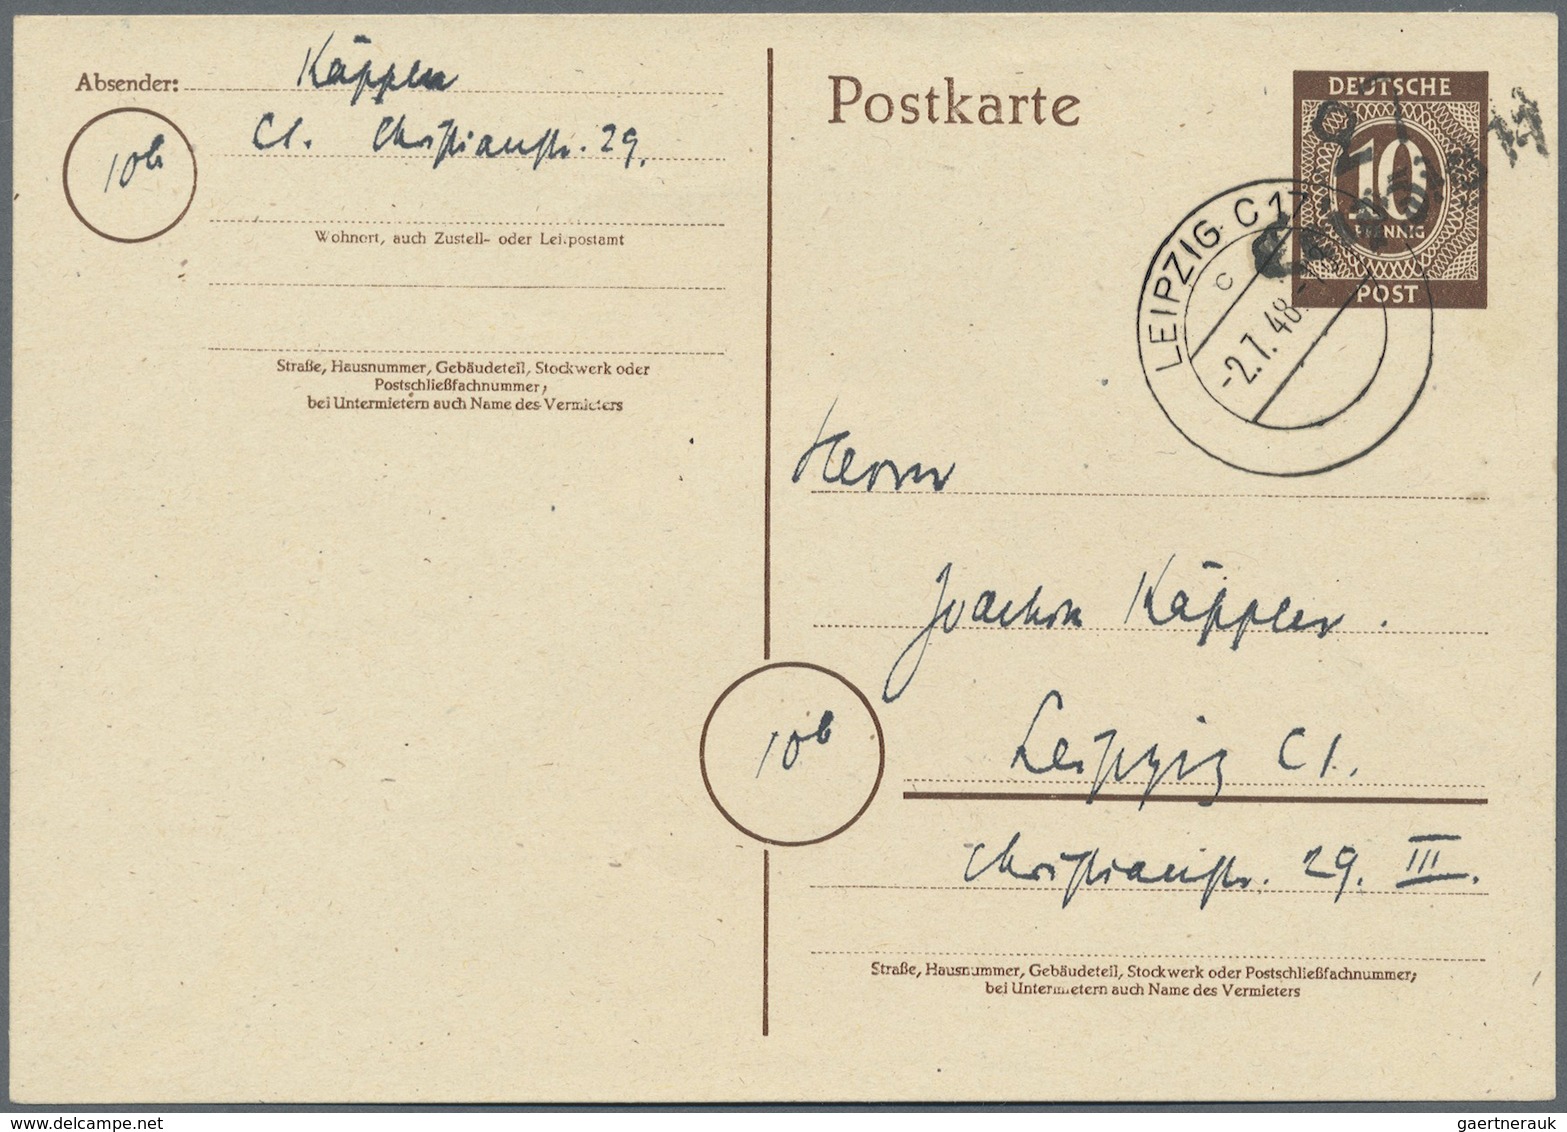 Absender: Käppler
C1. Christianstr. 29.
10b
Wohnort, auch Zustell- oder Leitpostamt
Straße, Hausnummer, Gebäudeteil, Stockwerk oder
Postschließfachnummer;
bei Untermietern auch Name des Vermieters
Postkarte
DEUTSCHE
10
PFENNIG
POST
27
Leipzig 14
LEIPZIG C 1
c
-2.7.48.-
Herrn
Joachim Käppler.
10b
Leipzig C1.
Christianstr. 29. III.
Straße, Hausnummer, Gebäudeteil, Stockwerk oder Postschließfachnummer;
bei Untermietern auch Name des Vermieters
gaertnerauk @ delcampe.net